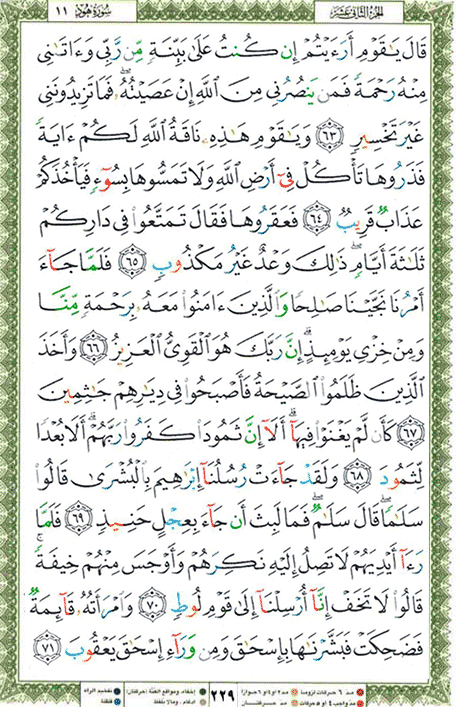 سُورَةُ هُودٍ ١١
الجُزءُ الثَّانِي عَشَر
قَالَ يَٰقَوْمِ أَرَءَيْتُمْ إِن كُنتُ عَلَىٰ بَيِّنَةٍ مِّن رَّبِّى وَءَاتَىٰنِى
مِنْهُ رَحْمَةً فَمَن يَنصُرُنِى مِنَ ٱللَّهِ إِنْ عَصَيْتُهُۥ فَمَا تَزِيدُونَنِى
غَيْرَ تَخْسِيرٍ ٦٣ وَيَٰقَوْمِ هَٰذِهِۦ نَاقَةُ ٱللَّهِ لَكُمْ ءَايَةً
فَذَرُوهَا تَأْكُلْ فِىٓ أَرْضِ ٱللَّهِ وَلَا تَمَسُّوهَا بِسُوٓءٍ فَيَأْخُذَكُمْ
عَذَابٌ قَرِيبٌ ٦٤ فَعَقَرُوهَا فَقَالَ تَمَتَّعُوا۟ فِى دَارِكُمْ
ثَلَٰثَةَ أَيَّامٍ ۖ ذَٰلِكَ وَعْدٌ غَيْرُ مَكْذُوبٍ ٦٥ فَلَمَّا جَآءَ
أَمْرُنَا نَجَّيْنَا صَٰلِحًا وَٱلَّذِينَ ءَامَنُوا۟ مَعَهُۥ بِرَحْمَةٍ مِّنَّا
وَمِنْ خِزْىِ يَوْمِئِذٍ ۗ إِنَّ رَبَّكَ هُوَ ٱلْقَوِىُّ ٱلْعَزِيزُ ٦٦ وَأَخَذَ
ٱلَّذِينَ ظَلَمُوا۟ ٱلصَّيْحَةُ فَأَصْبَحُوا۟ فِى دِيَٰرِهِمْ جَٰثِمِينَ
٦٧ كَأَن لَّمْ يَغْنَوْا۟ فِيهَآ ۗ أَلَآ إِنَّ ثَمُودَا۟ كَفَرُوا۟ رَبَّهُمْ ۗ أَلَا بُعْدًا
لِّثَمُودَ ٦٨ وَلَقَدْ جَآءَتْ رُسُلُنَآ إِبْرَٰهِيمَ بِٱلْبُشْرَىٰ قَالُوا۟
سَلَٰمًا ۖ قَالَ سَلَٰمٌ ۖ فَمَا لَبِثَ أَن جَآءَ بِعِجْلٍ حَنِيذٍ ٦٩ فَلَمَّا
رَءَآ أَيْدِيَهُمْ لَا تَصِلُ إِلَيْهِ نَكِرَهُمْ وَأَوْجَسَ مِنْهُمْ خِيفَةً ۚ
قَالُوا۟ لَا تَخَفْ إِنَّآ أُرْسِلْنَآ إِلَىٰ قَوْمِ لُوطٍ ٧٠ وَٱمْرَأَتُهُۥ قَآئِمَةٌ
فَضَحِكَتْ فَبَشَّرْنَٰهَا بِإِسْحَٰقَ وَمِن وَرَآءِ إِسْحَٰقَ يَعْقُوبَ ٧١
٢٢٩
مد ٦ حركات لزوما
مد ٢ او ٤ او ٦ جوازا
إخفاء، ومواقع الغنة (حركتان)
تفخيم الراء
مد واجب ٤ او ٥ حركات
مد حركتان
ادغام، وما لا يلفظ
قلقلة